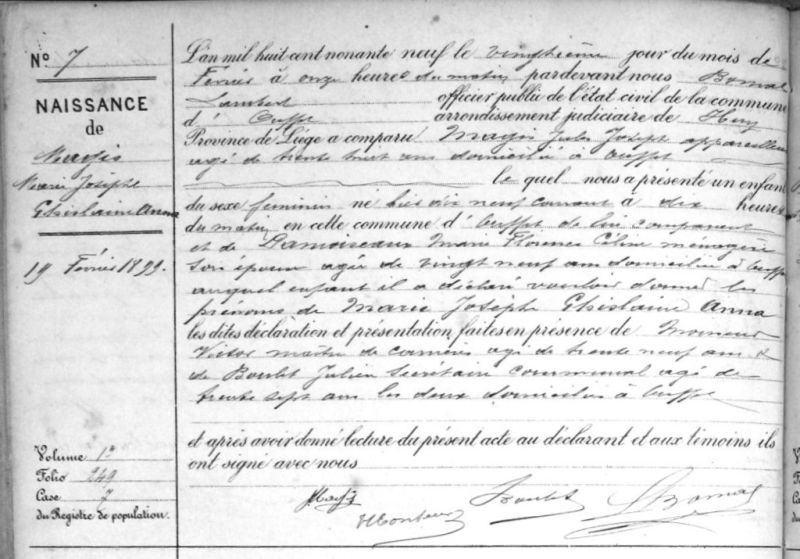 N° 7
NAISSANCE
de
Magis
Marie Josèphe
Ghislaine Anna
19 Février 1899.
Volume 1r
Folio 249
Case 7
du Registre de population.
L'an mil huit cent nonante neuf le vingtième jour du mois de
Fevrier à onze heures du matin pardevant nous Bomal
Lambert officier public de l'état civil de la commune
d' Ouffet arrondissement judiciaire de Huy
Province de Liége a comparu Magis Jules Joseph appareilleur
agé de trente huit ans domicilié à Ouffet
le quel nous a présenté un enfant
du sexe feminin né hier dix neuf courant à dix heures
du matin en cette commune d' Ouffet de lui comparant
et de Lamoureaux Marie Florence Céline ménagère
son épouse agée de vingt neuf ans domiciliée à Ouffet
auquel enfant il a déclaré vouloir donner les
prénoms de Marie Josèphe Ghislaine Anna
les dites déclaration et présentation faites en présence de
Victor maître de carrières agé de trente neuf ans &
de Boulet Julien secrétaire communal agé de
trente sept ans les deux domiciliés à Ouffet
et après avoir donné lecture du présent acte au déclarant et aux témoins ils
ont signé avec nous
Magis
Boulet
LBomal